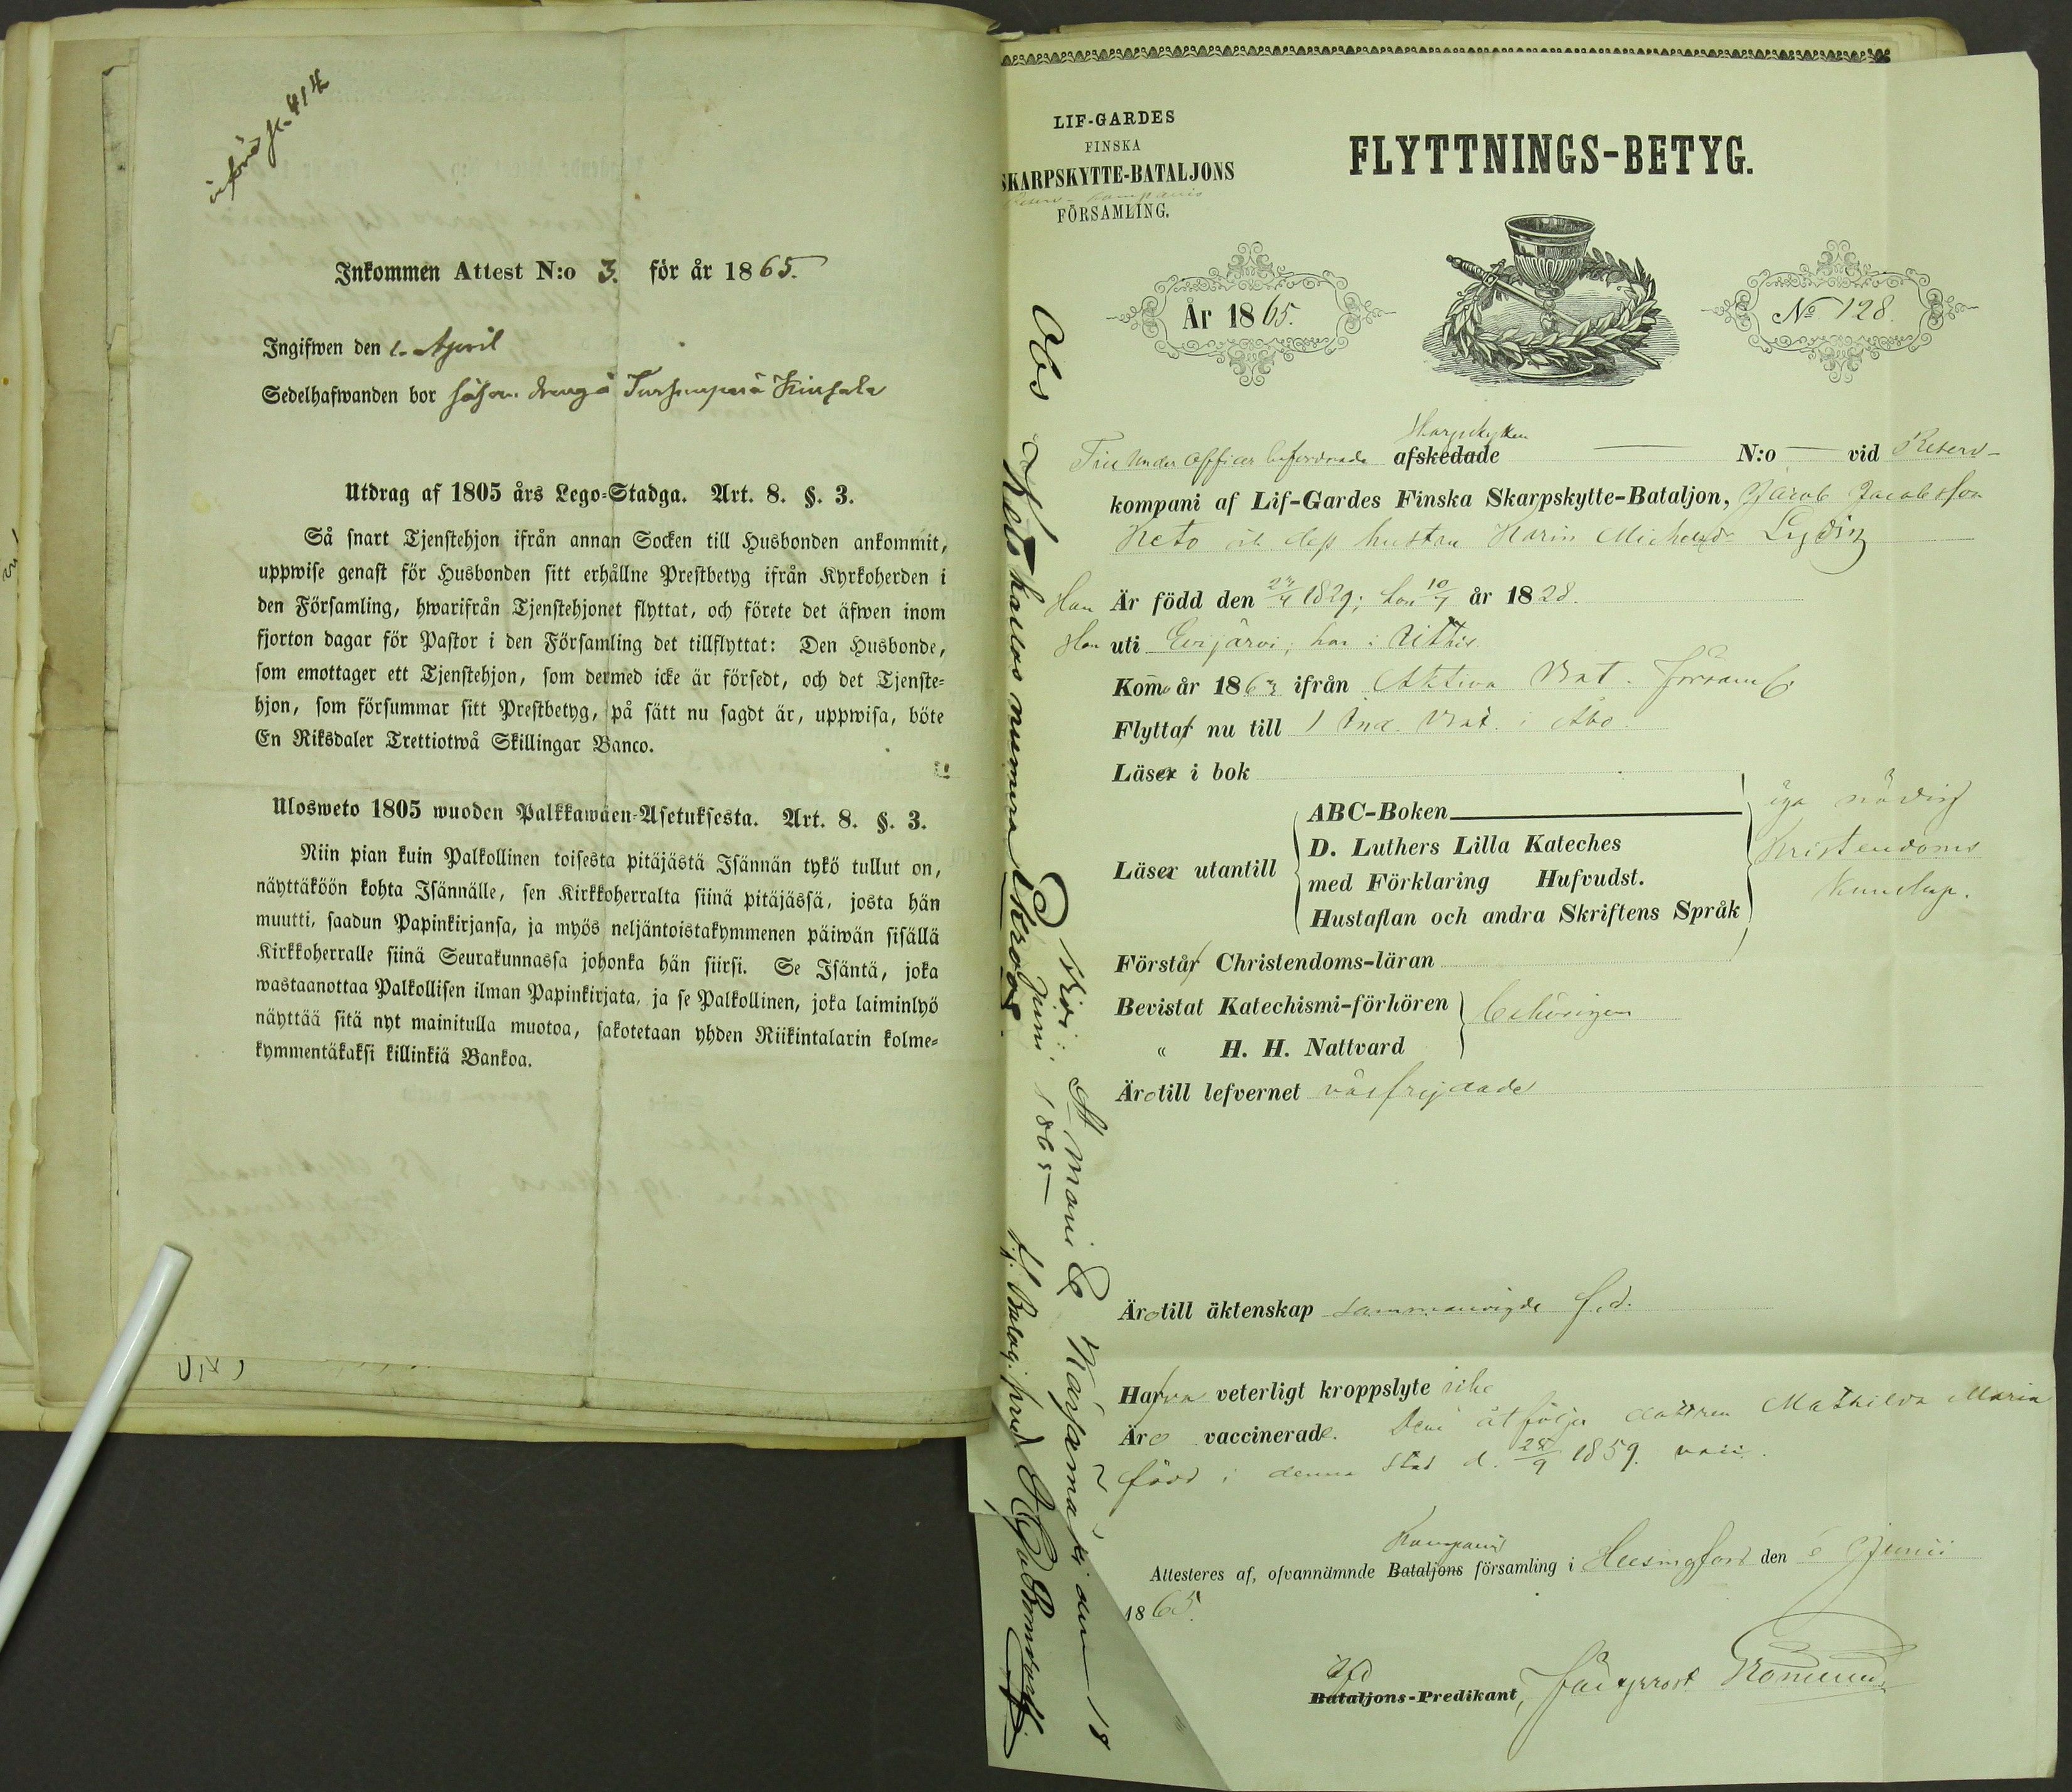 införd p. 414
Inkommen Attest N:o 3. för år 1865.
Ingifwen den 1. April
Sedelhafwanden bor såsom dräng å
Utdrag af 1805 års Lego-Stadga. Art. 8. §. 3.
Så snart Tjenstehjon ifrån annan Socken till Husbonden ankommit,
uppwise genast för Husbonden sitt erhållne Prestbetyg ifrån Kyrkoherden i
den Församling, hwarifrån Tjenstehjonet flyttat, och förete det äfwen inom
fjorton dagar för Pastor i den Församling det tillflyttat: Den Husbonde,
som emottager ett Tjenstehjon, som dermed icke är försedt, och det Tjenste-
hjon, som försummar sitt Prestbetyg, på sätt nu sagdt är, uppwisa, böte
En Riksdaler Trettiotwå Skillingar Banco.
Ulosweto 1805 wuoden Palkkawäen-Asetuksesta. Art. 8. §. 3.
Niin pian kuin Palkollinen toisesta pitäjästä Isännän tykö tullut on,
näyttäköön kohta Isännälle, sen Kirkkoherralta siinä pitäjässä, josta hän
muutti, saadun Papinkirjansa, ja myös neljäntoistakymmenen päiwän sisällä
Kirkkoherralle siinä Seurakunnassa johonka hän siirsi. Se Isäntä, joka
wastaanottaa Palkollisen ilman Papinkirjata, ja se Palkollinen, joka laiminlyö
näyttää sitä nyt mainitulla muotoa, sakotetaan yhden Riikintalarin kolme-
kymmentäkaksi killinkiä Bankoa.
LIF-GARDES
FINSKA
SKARPSKYTTE-BATALJONS
Reserv-Kompanis
FÖRSAMLING.
FLYTTNINGS-BETYG.
År 1865.
No 128.
Skarpskytten
Till Under Officer befordrade afskedade N:o vid Reserv-
kompani af Lif-Gardes Finska Skarpskytte-Bataljon, Jacob Jacobsson
Keto och dess hustru Karin Michelsdr Lydig
Han Är född den 23/4 1829; hon 10/7 år 1828.
Han uti Evijärvi; hon i
Komo år 1863 ifrån Aktiva Bat. Församl.
Flyttar nu till 1 Ind. Bat. i Åbo.
Läser i bok
Läser utantill
ABC-Boken
D. Luthers Lilla Kateches
med Förklaring Hufvudst.
Hustaflan och andra Skriftens Språk
äga nödig
Kristendoms
Kunskap.
Förstår Christendoms-läran
Bevistat Katechismi-förhören
" H. H. Nattvard
behörigen
Äro till lefvernet välfrejdade
Äro till äktenskap sammanvigde f.d.
Hafva veterligt kroppslyte icke
Äro vaccinerade. Dem åtföljer dottren Mathilda Maria
född i denna stad d. 28/9 1859. vacc.
Kompanis
Attesteras af, ofvannämnde Bataljons församling i Helsingfors den 6 Junii
1865.
Bataljons-Predikant,
Obs Keto kallas numera Ekroos.
Juni 1865